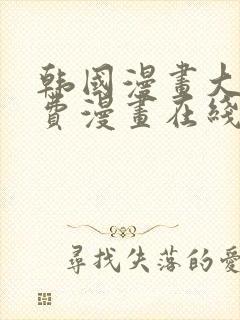 韩國漫畫大
費漫畫在綫
尋找失落的愛